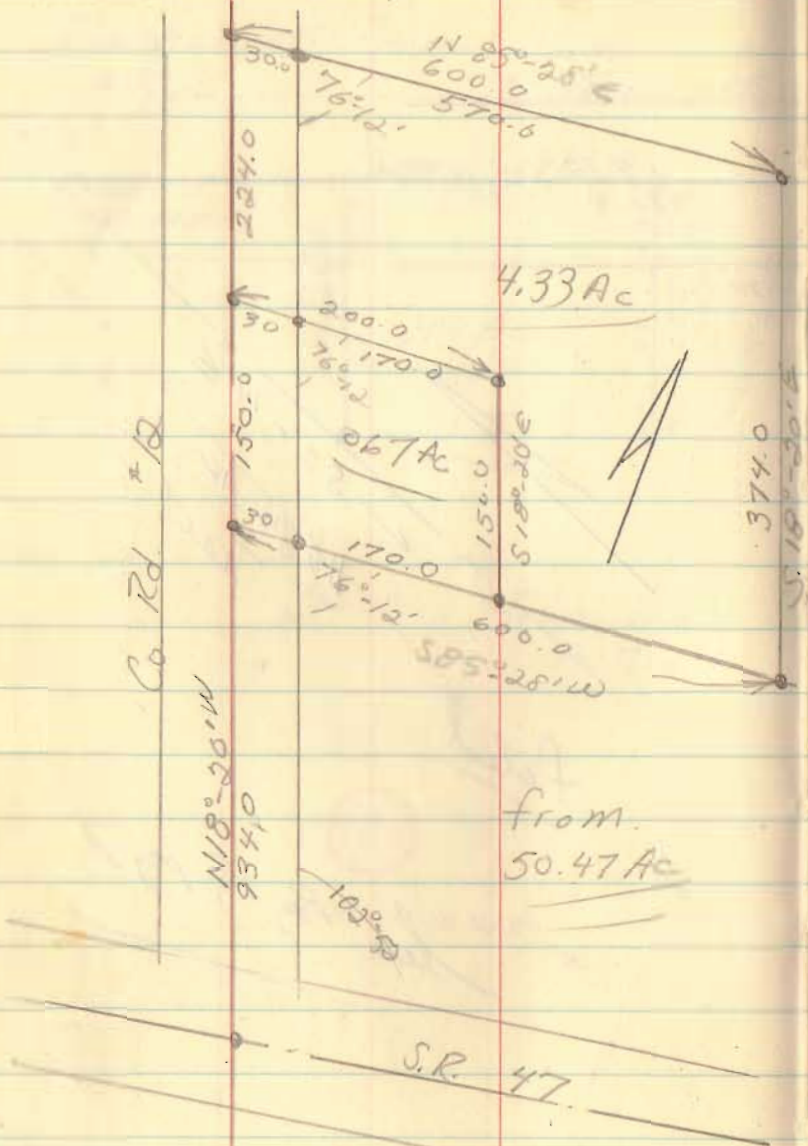 N 85°-28' E
600.0
30.0
570.0
76°-12'
224.0
4.33 Ac
200.0
30
170.0
76°-12
150.0
0.67 Ac
150.0
S 18°-20' E
374.0
S. 18°-20' E
Co Rd #12
30
170.0
76°-12'
600.0
S85°-28' W
N18°-20' W
934.0
from
50.47 Ac
102°-50
S.R. 47